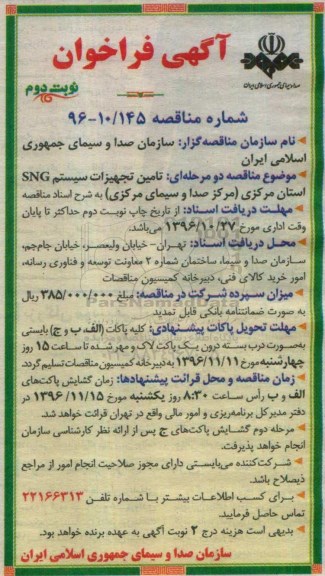 آگهی فراخوان
صدا و سیمای جمهوری اسلامی ایران
نوبت دوم
شماره مناقصه ۱۰/۱۴۵-۹۶
نام سازمان مناقصه‌گزار: سازمان صدا و سیمای جمهوری
اسلامی ایران
موضوع مناقصه دو مرحله‌ای: تامین تجهیزات سیستم SNG
استان مرکزی (مرکز صدا و سیمای مرکزی) به شرح اسناد مناقصه
مهلت دریافت اسناد: از تاریخ چاپ نوبت دوم حداکثر تا پایان
وقت اداری مورخ ۱۳۹۶/۱۰/۲۷ می‌باشد.
محل دریافت اسناد: تهران- خیابان ولیعصر، خیابان جام‌جم،
سازمان صدا و سیما، ساختمان شماره ۲ معاونت توسعه و فناوری رسانه،
امور خرید کالای فنی، دبیرخانه کمیسیون مناقصات
میزان سپرده شرکت در مناقصه: مبلغ ۳۸۵/۰۰۰/۰۰۰ ریال
به صورت ضمانتنامه بانکی قابل تمدید
مهلت تحویل پاکات پیشنهادی: کلیه پاکات (الف، ب و ج) بایستی
به‌صورت درب بسته درون یک پاکت لاک و مهر شده تا ساعت ۱۵ روز
چهارشنبه مورخ ۱۳۹۶/۱۱/۱۱ به دبیرخانه کمیسیون مناقصات تسلیم گردد.
زمان مناقصه و محل قرائت پیشنهادها: زمان گشایش پاکت‌های
الف و ب رأس ساعت ۸:۳۰ روز یکشنبه مورخ ۱۳۹۶/۱۱/۱۵ در
دفتر مدیر کل برنامه‌ریزی و امور مالی واقع در تهران قرائت خواهد شد.
مرحله دوم گشایش پاکت‌های ج پس از ارائه نظر کارشناسی سازمان
انجام خواهد پذیرفت.
شرکت‌کننده می‌بایستی دارای مجوز صلاحیت انجام امور از مراجع
ذیصلاح باشد.
برای کسب اطلاعات بیشتر با شماره تلفن ۲۲۱۶۶۳۱۳
تماس حاصل فرمایید.
بدیهی است هزینه درج ۲ نوبت آگهی به عهده برنده خواهد بود.
سازمان صدا و سیمای جمهوری اسلامی ایران